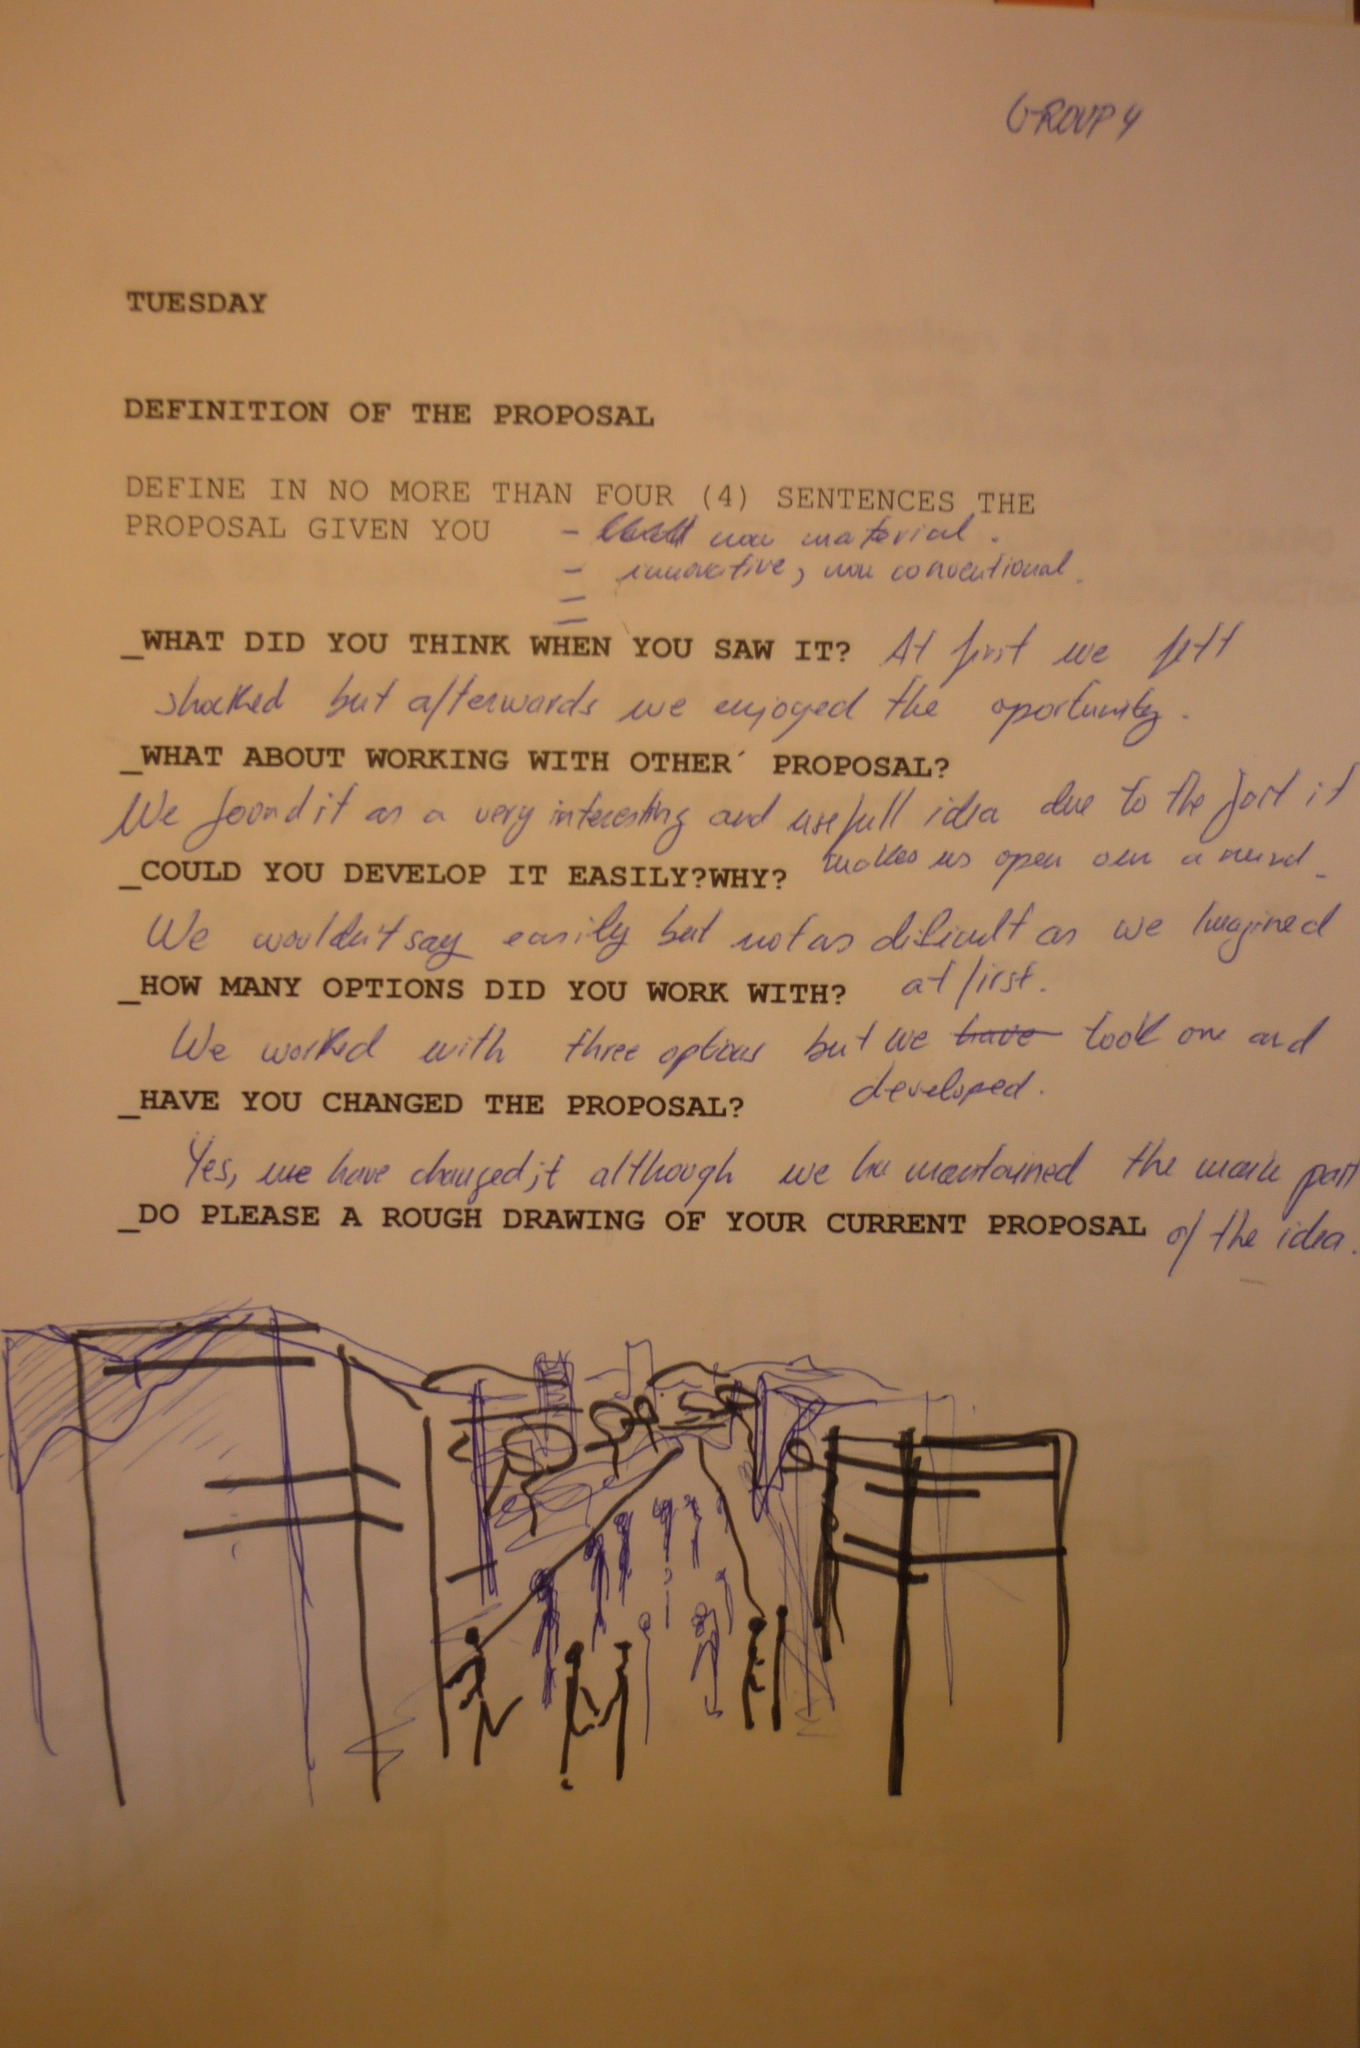 GROUP 4
TUESDAY
DEFINITION OF THE PROPOSAL
DEFINE IN NO MORE THAN FOUR (4) SENTENCES THE
PROPOSAL GIVEN YOU
- non material.
- innovative, non conventional.
_WHAT DID YOU THINK WHEN YOU SAW IT? At first we felt
shocked but afterwards we enjoyed the oportunity.
_WHAT ABOUT WORKING WITH OTHER´ PROPOSAL?
We found it as a very interesting and usefull idea due to the fact it
makes us open our mind.
_COULD YOU DEVELOP IT EASILY?WHY?
We wouldn't say easily but not as dificult as we Imagined
at first.
_HOW MANY OPTIONS DID YOU WORK WITH?
We worked with three options but we have took one and
developed.
_HAVE YOU CHANGED THE PROPOSAL?
Yes, we have changed it although we ha maintained the main part
of the idea.
_DO PLEASE A ROUGH DRAWING OF YOUR CURRENT PROPOSAL